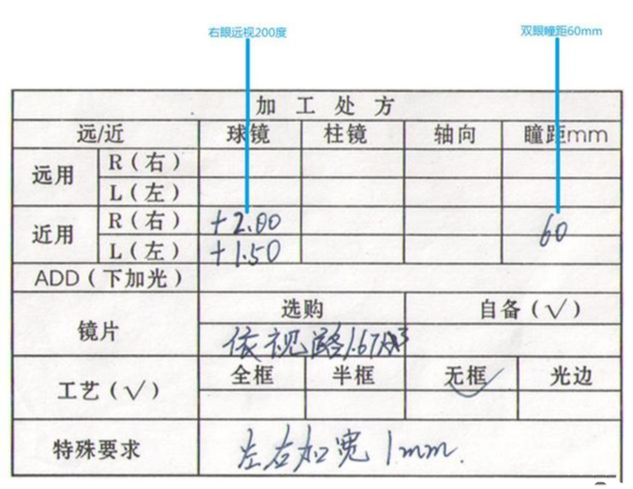 右眼远视200度 双眼瞳距60mm
加工处方
远/近 球镜 柱镜 轴向 瞳距mm
远用 R(右)
L(左)
近用 R(右) +2.00 60
L(左) +1.50
ADD(下加光)
镜片 选购 自备(√)
依视路1.67
工艺(√) 全框 半框 无框 光边
√
特殊要求 左右加宽1mm.